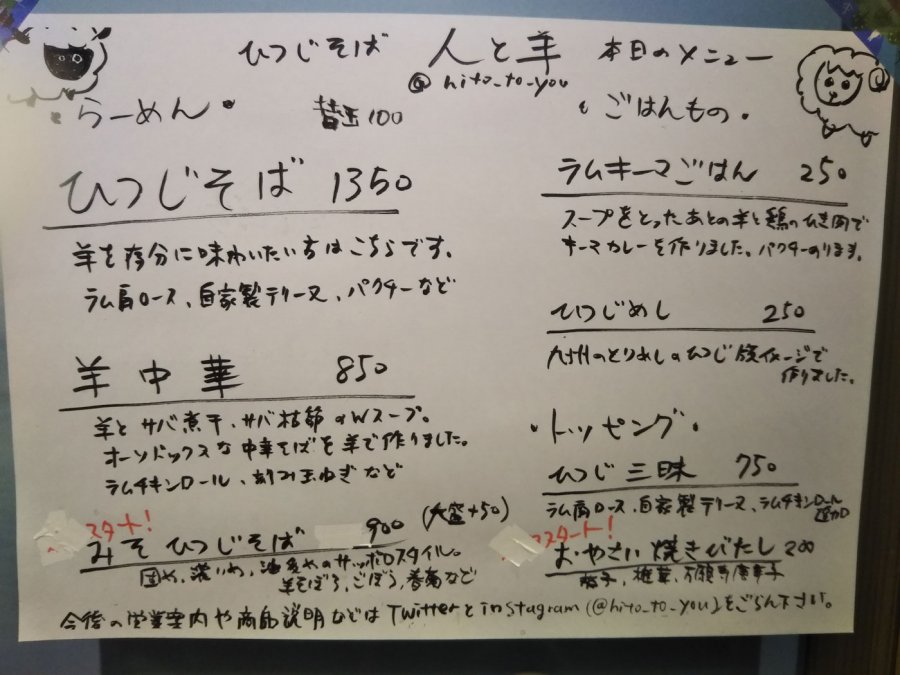 ひつじそば 人と羊 本日のメニュー
@hito_to_you
・らーめん・ 替玉100
ひつじそば 1350
羊を存分に味わいたい方はこちらです。
ラム肩ロース、自家製テリーヌ、パクチーなど
羊中華 850
羊とサバ煮干、サバ枯節のWスープ。
オーソドックスな中華そばを羊で作りました。
ラムチキンロール、刻み玉ねぎなど
スタート!
みそひつじそば 900 (大盛+50)
サッポロスタイル。
羊そぼろ、ごぼう、春菊など
・ごはんもの・
ラムキーマごはん 250
スープをとったあとの羊と鶏のひき肉で
キーマカレーを作りました。パクチーのります。
ひつじめし 250
九州のとりめしのひつじ版イメージで
作りました。
・トッピング・
ひつじ三昧 750
ラム肩ロース、自家製テリーヌ、ラムチキンロール
追加
スタート!
おやさい焼きびたし 200
今後の営業案内や商品説明などはTwitterとinstagram(@hito_to_you)をごらん下さい。